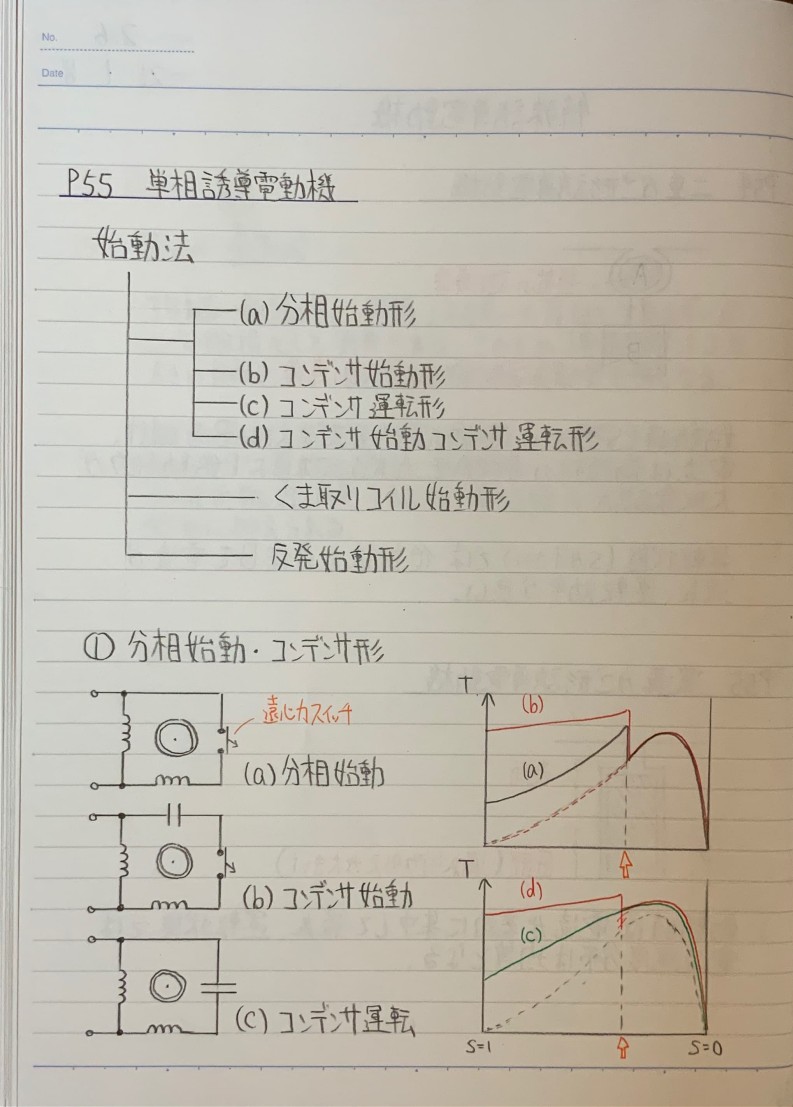 No.
Date
P55 単相誘導電動機
始動法
(a) 分相始動形
(b) コンデンサ始動形
(c) コンデンサ運転形
(d) コンデンサ始動コンデンサ運転形
くま取りコイル始動形
反発始動形
① 分相始動・コンデンサ形
遠心力スイッチ
(a) 分相始動
(b) コンデンサ始動
(c) コンデンサ運転
T
(b)
(a)
T
(d)
(c)
S=1
S=0